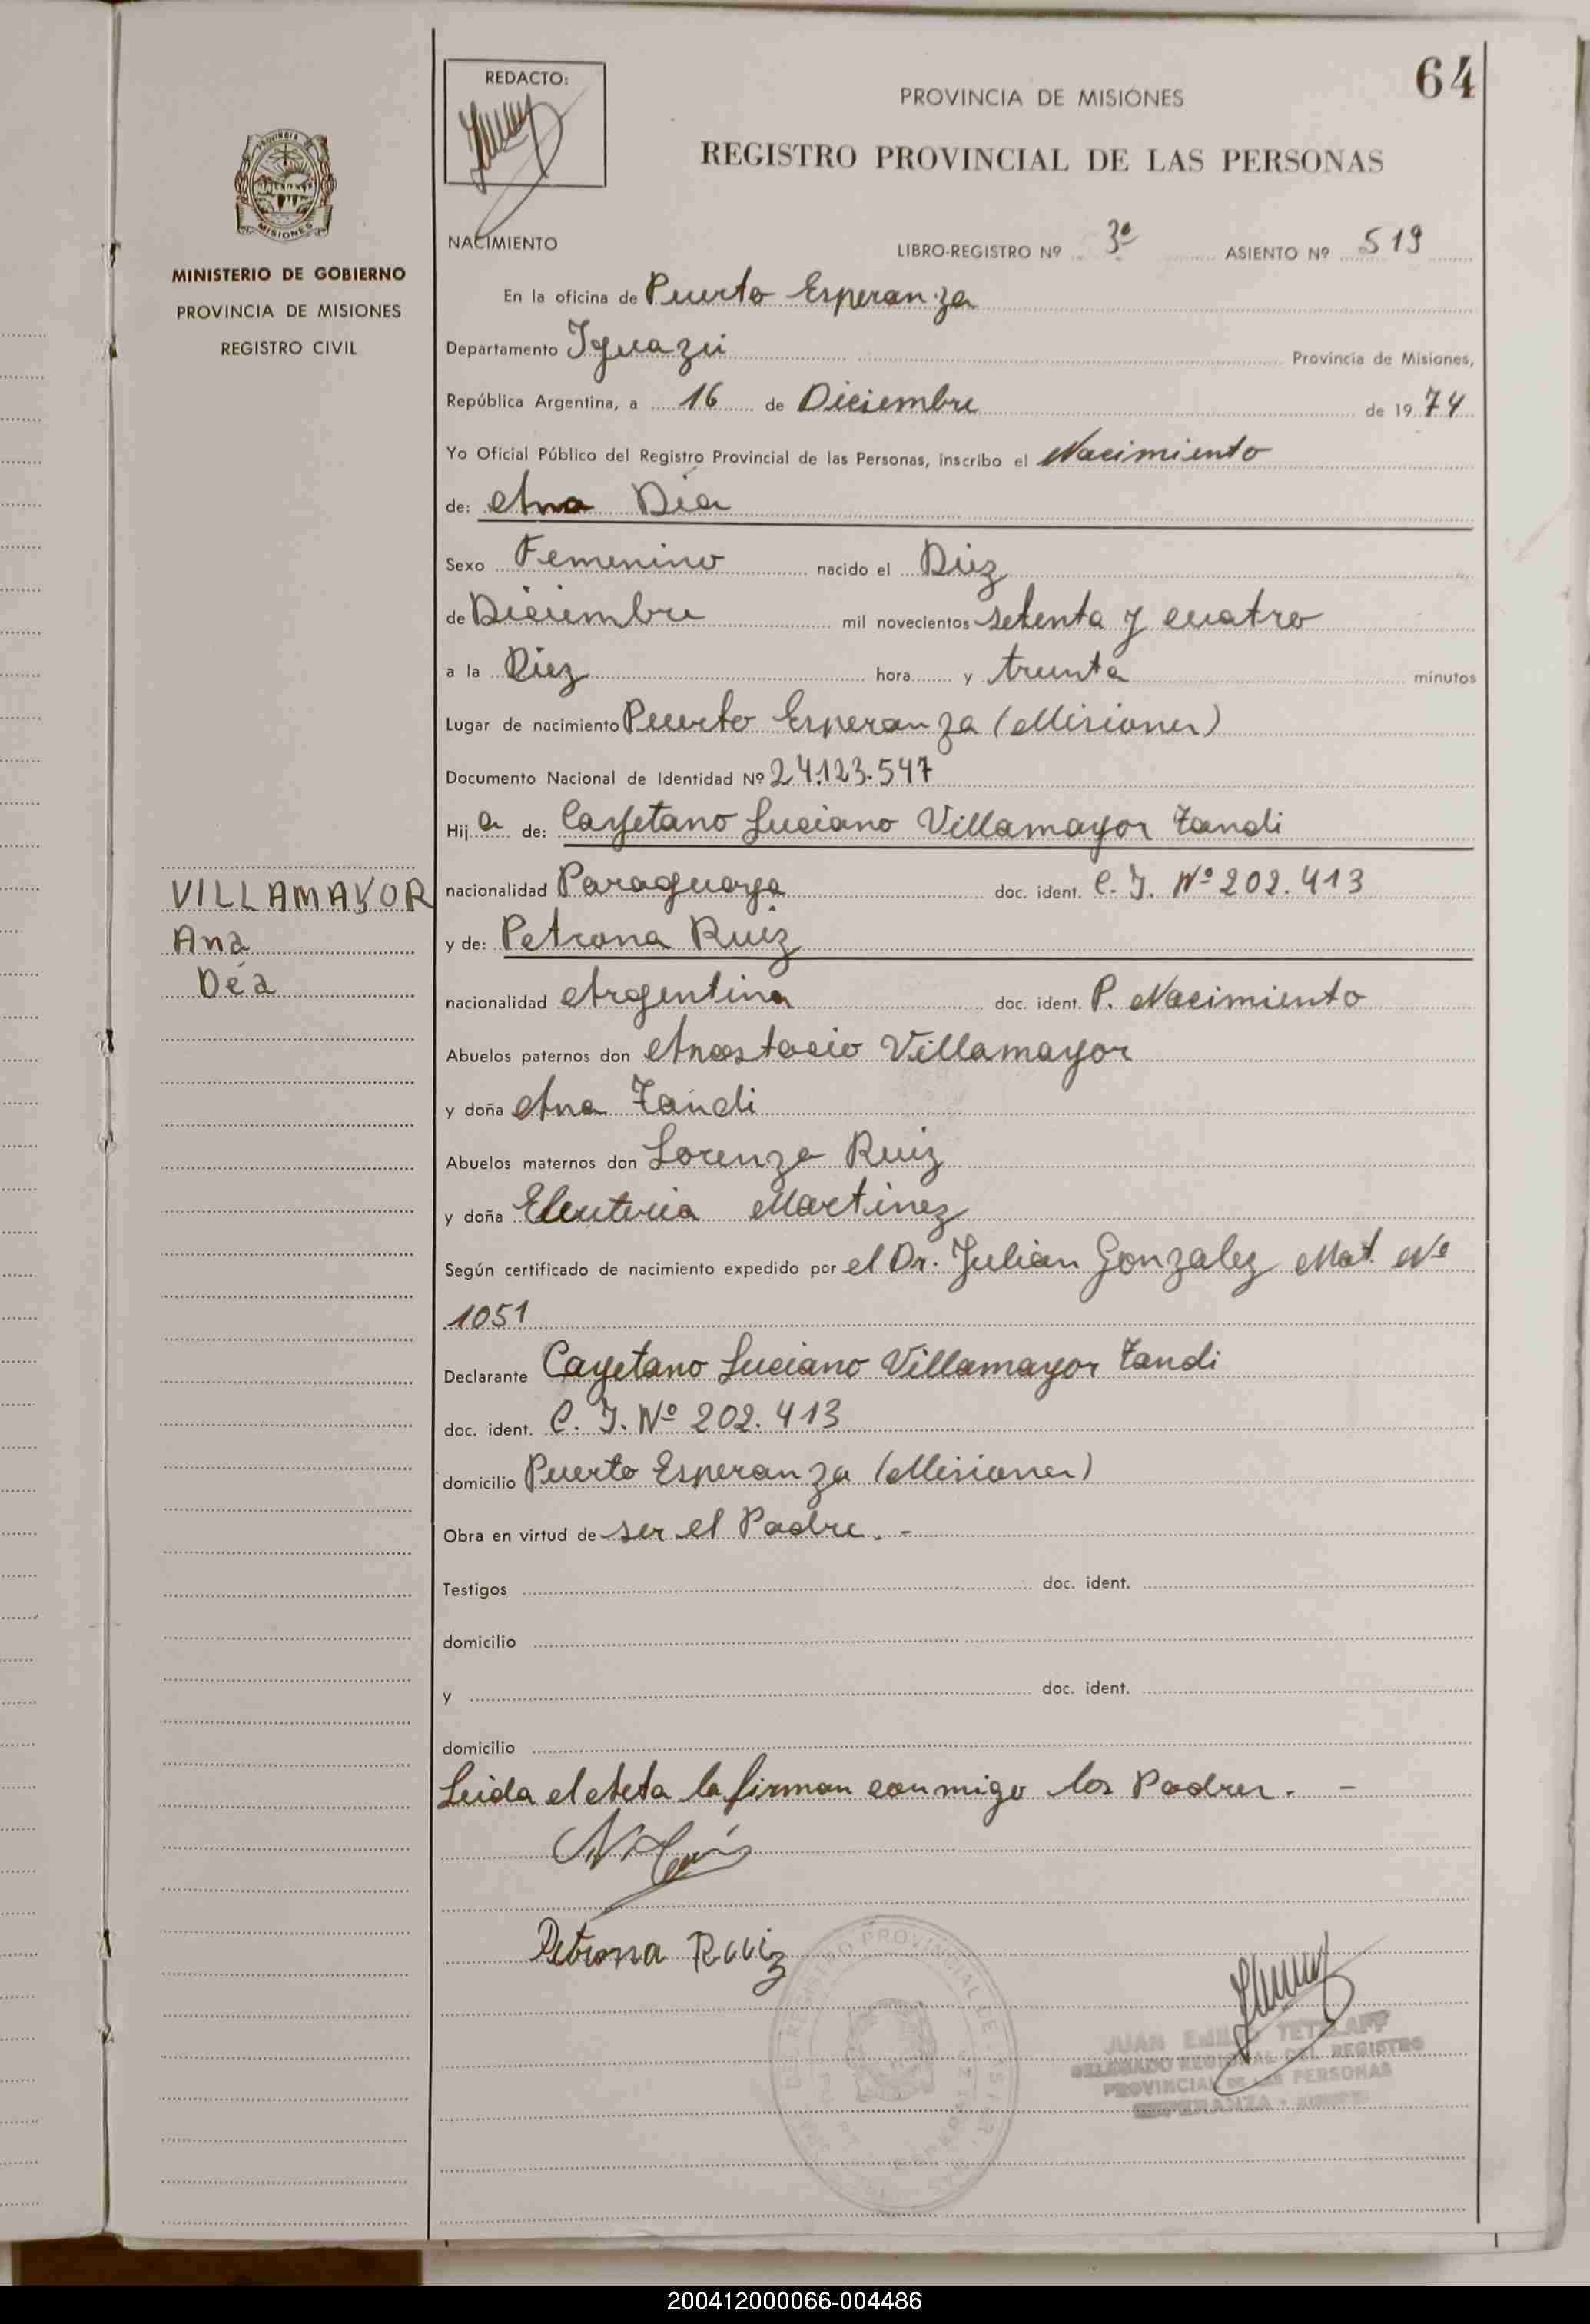 64
REDACTO:
PROVINCIA DE MISIONES
REGISTRO PROVINCIAL DE LAS PERSONAS
PROVINCIA
MISIONES
MINISTERIO DE GOBIERNO
PROVINCIA DE MISIONES
REGISTRO CIVIL
NACIMIENTO LIBRO-REGISTRO Nº 3º ASIENTO Nº 519
En la oficina de Puerto Esperanza
Departamento Iguazú Provincia de Misiones,
República Argentina, a 16 de Diciembre de 1974
Yo Oficial Público del Registro Provincial de las Personas, inscribo el Nacimiento
de: Ana Déa
Sexo Femenino nacido el Diez
de Diciembre mil novecientos setenta y cuatro
a la Diez hora y treinta minutos
Lugar de nacimiento Puerto Esperanza (Misiones)
Documento Nacional de Identidad Nº 24.123.547
Hija de: Cayetano Luciano Villamayor Zandi
VILLAMAYOR
Ana
Déa
nacionalidad Paraguaya doc. ident. C. I. Nº 202.413
y de: Petrona Ruiz
nacionalidad Argentina doc. ident. P. Nacimiento
Abuelos paternos don Anastacio Villamayor
y doña Ana Zandi
Abuelos maternos don Lorenzo Ruiz
y doña Eleuteria Martinez
Según certificado de nacimiento expedido por el Dr. Julián Gonzalez Mat. Nº
1051
Declarante Cayetano Luciano Villamayor Zandi
doc. ident. C. I. Nº 202.413
domicilio Puerto Esperanza (Misiones)
Obra en virtud de ser el Padre. -
Testigos doc. ident.
domicilio
y doc. ident.
domicilio
Leida el Acta la firman conmigo los Padres. -
Petrona Ruiz
REGISTRO PROVINCIAL DE LAS
JUAN EMILIO TETZLAFF
DELEGADO REGIONAL DEL REGISTRO
PROVINCIAL DE LAS PERSONAS
ESPERANZA -
200412000066-004486